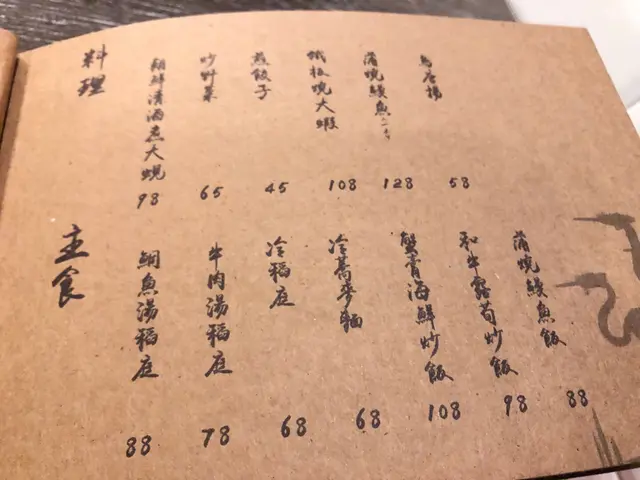 料理
朝鮮清酒煮大蜆
98
炒野菜
65
煎餃子
45
鐵板燒大蝦
108
蒲燒鰻魚
128
鳥唐揚
58
主食
鯛魚湯稻庭
88
牛肉湯稻庭
78
冷稻庭
68
冷蕎麥麵
68
蟹青海鮮炒飯
108
和牛露荀炒飯
98
蒲燒鰻魚飯
88